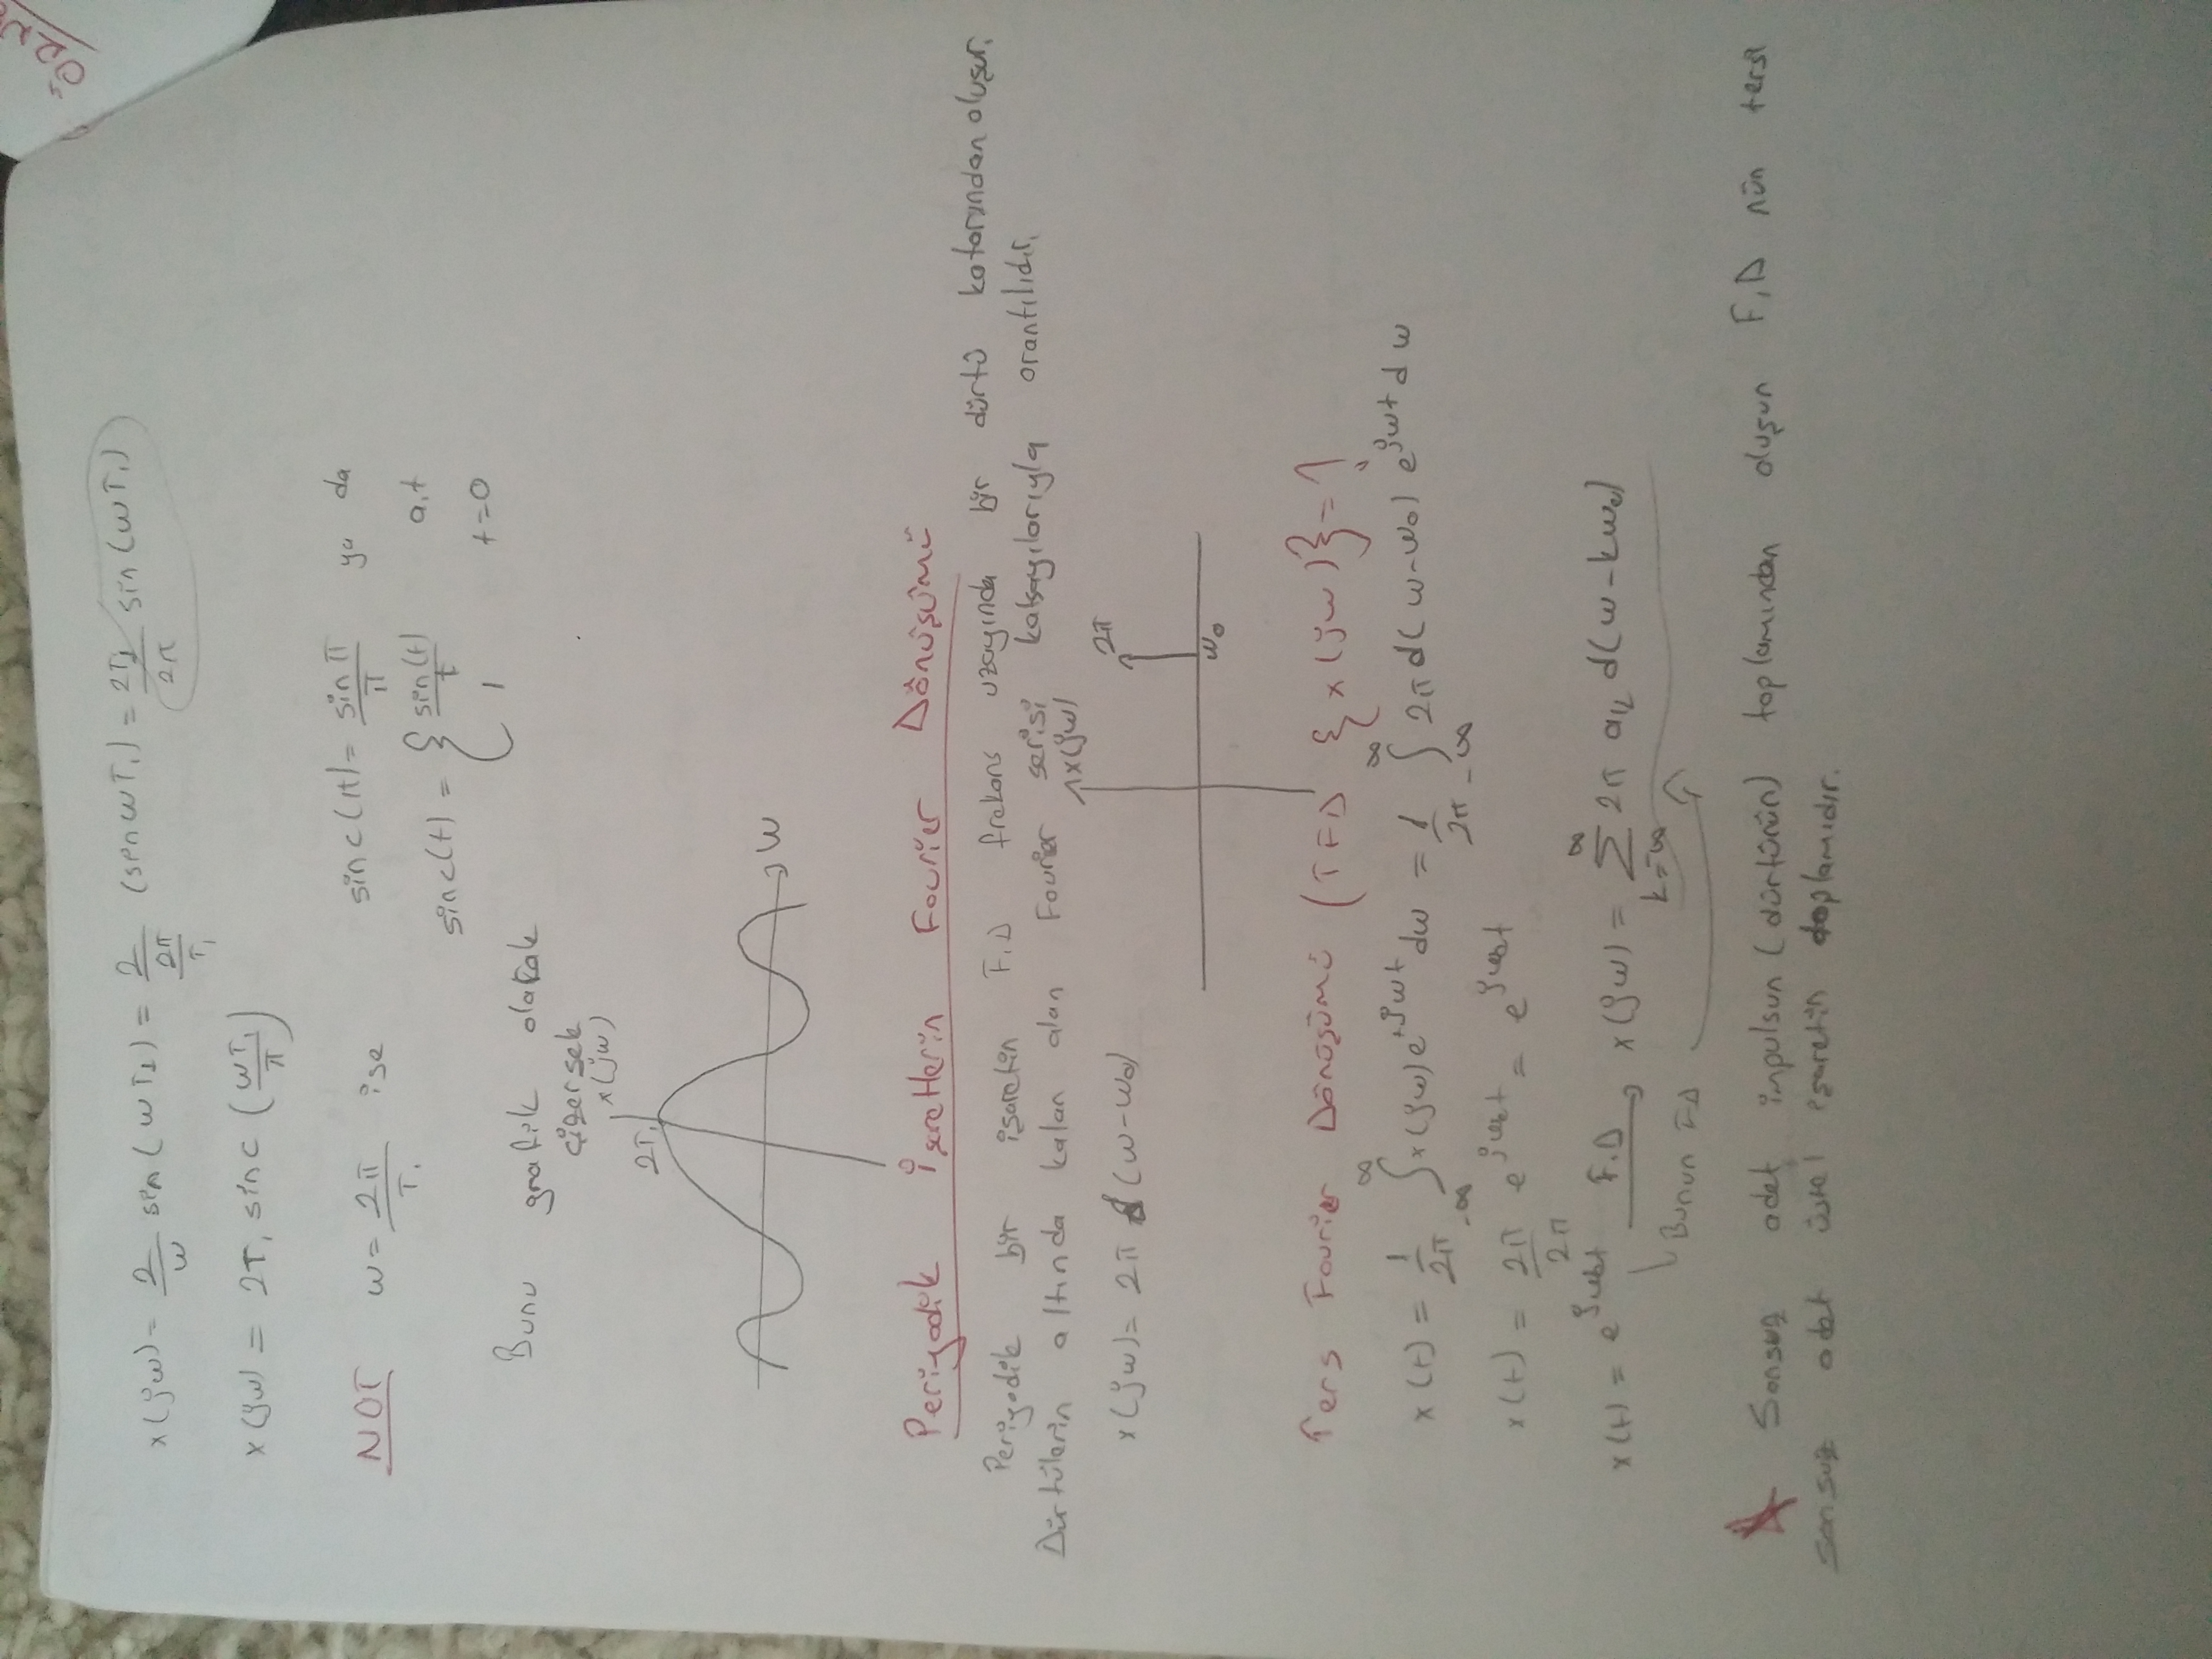 x(jw) = 2/w sin(wT₁) = 2/(2π/T₁) (sin wT₁) = 2T₁/2π sin(wT₁)
x(jw) = 2T₁ sinc(wT₁/π)
NOT w = 2π/T₁ ise sinc(t) = sinπ/π ya da
sinc(t) = { sin(t)/t a,t
1 t=0
Bunu grafik olarak
çizersek
x(jw)
2T₁
w
Periyodik İşaretlerin Fourier Dönüşümü
Periyodik bir işaretin F.D frekans uzayında bir dürtü katarından oluşur.
Dürtülerin altında kalan alan Fourier serisi katsayılarıyla orantılıdır.
x(jw) = 2π d(w-w₀)
x(jw)
2π
w₀
Ters Fourier Dönüşümü (TFD {x(jw)} = 1
x(t) = 1/2π ∫_{-∞}^{∞} x(jw) e^{+jwt} dw = 1/2π ∫_{-∞}^{∞} 2π d(w-w₀) e^{jwt} dw
x(t) = 2π/2π e^{jw₀t} = e^{jw₀t}
x(t) = e^{jw₀t} F.D → x(jw) = ∑_{k=-∞}^{∞} 2π aₖ d(w-kw₀)
Bunun FD
Sonsuz adet impulsun (dürtünün) toplamından oluşun F.D nün tersi
sonsuz adet üstel işaretin toplamıdır.